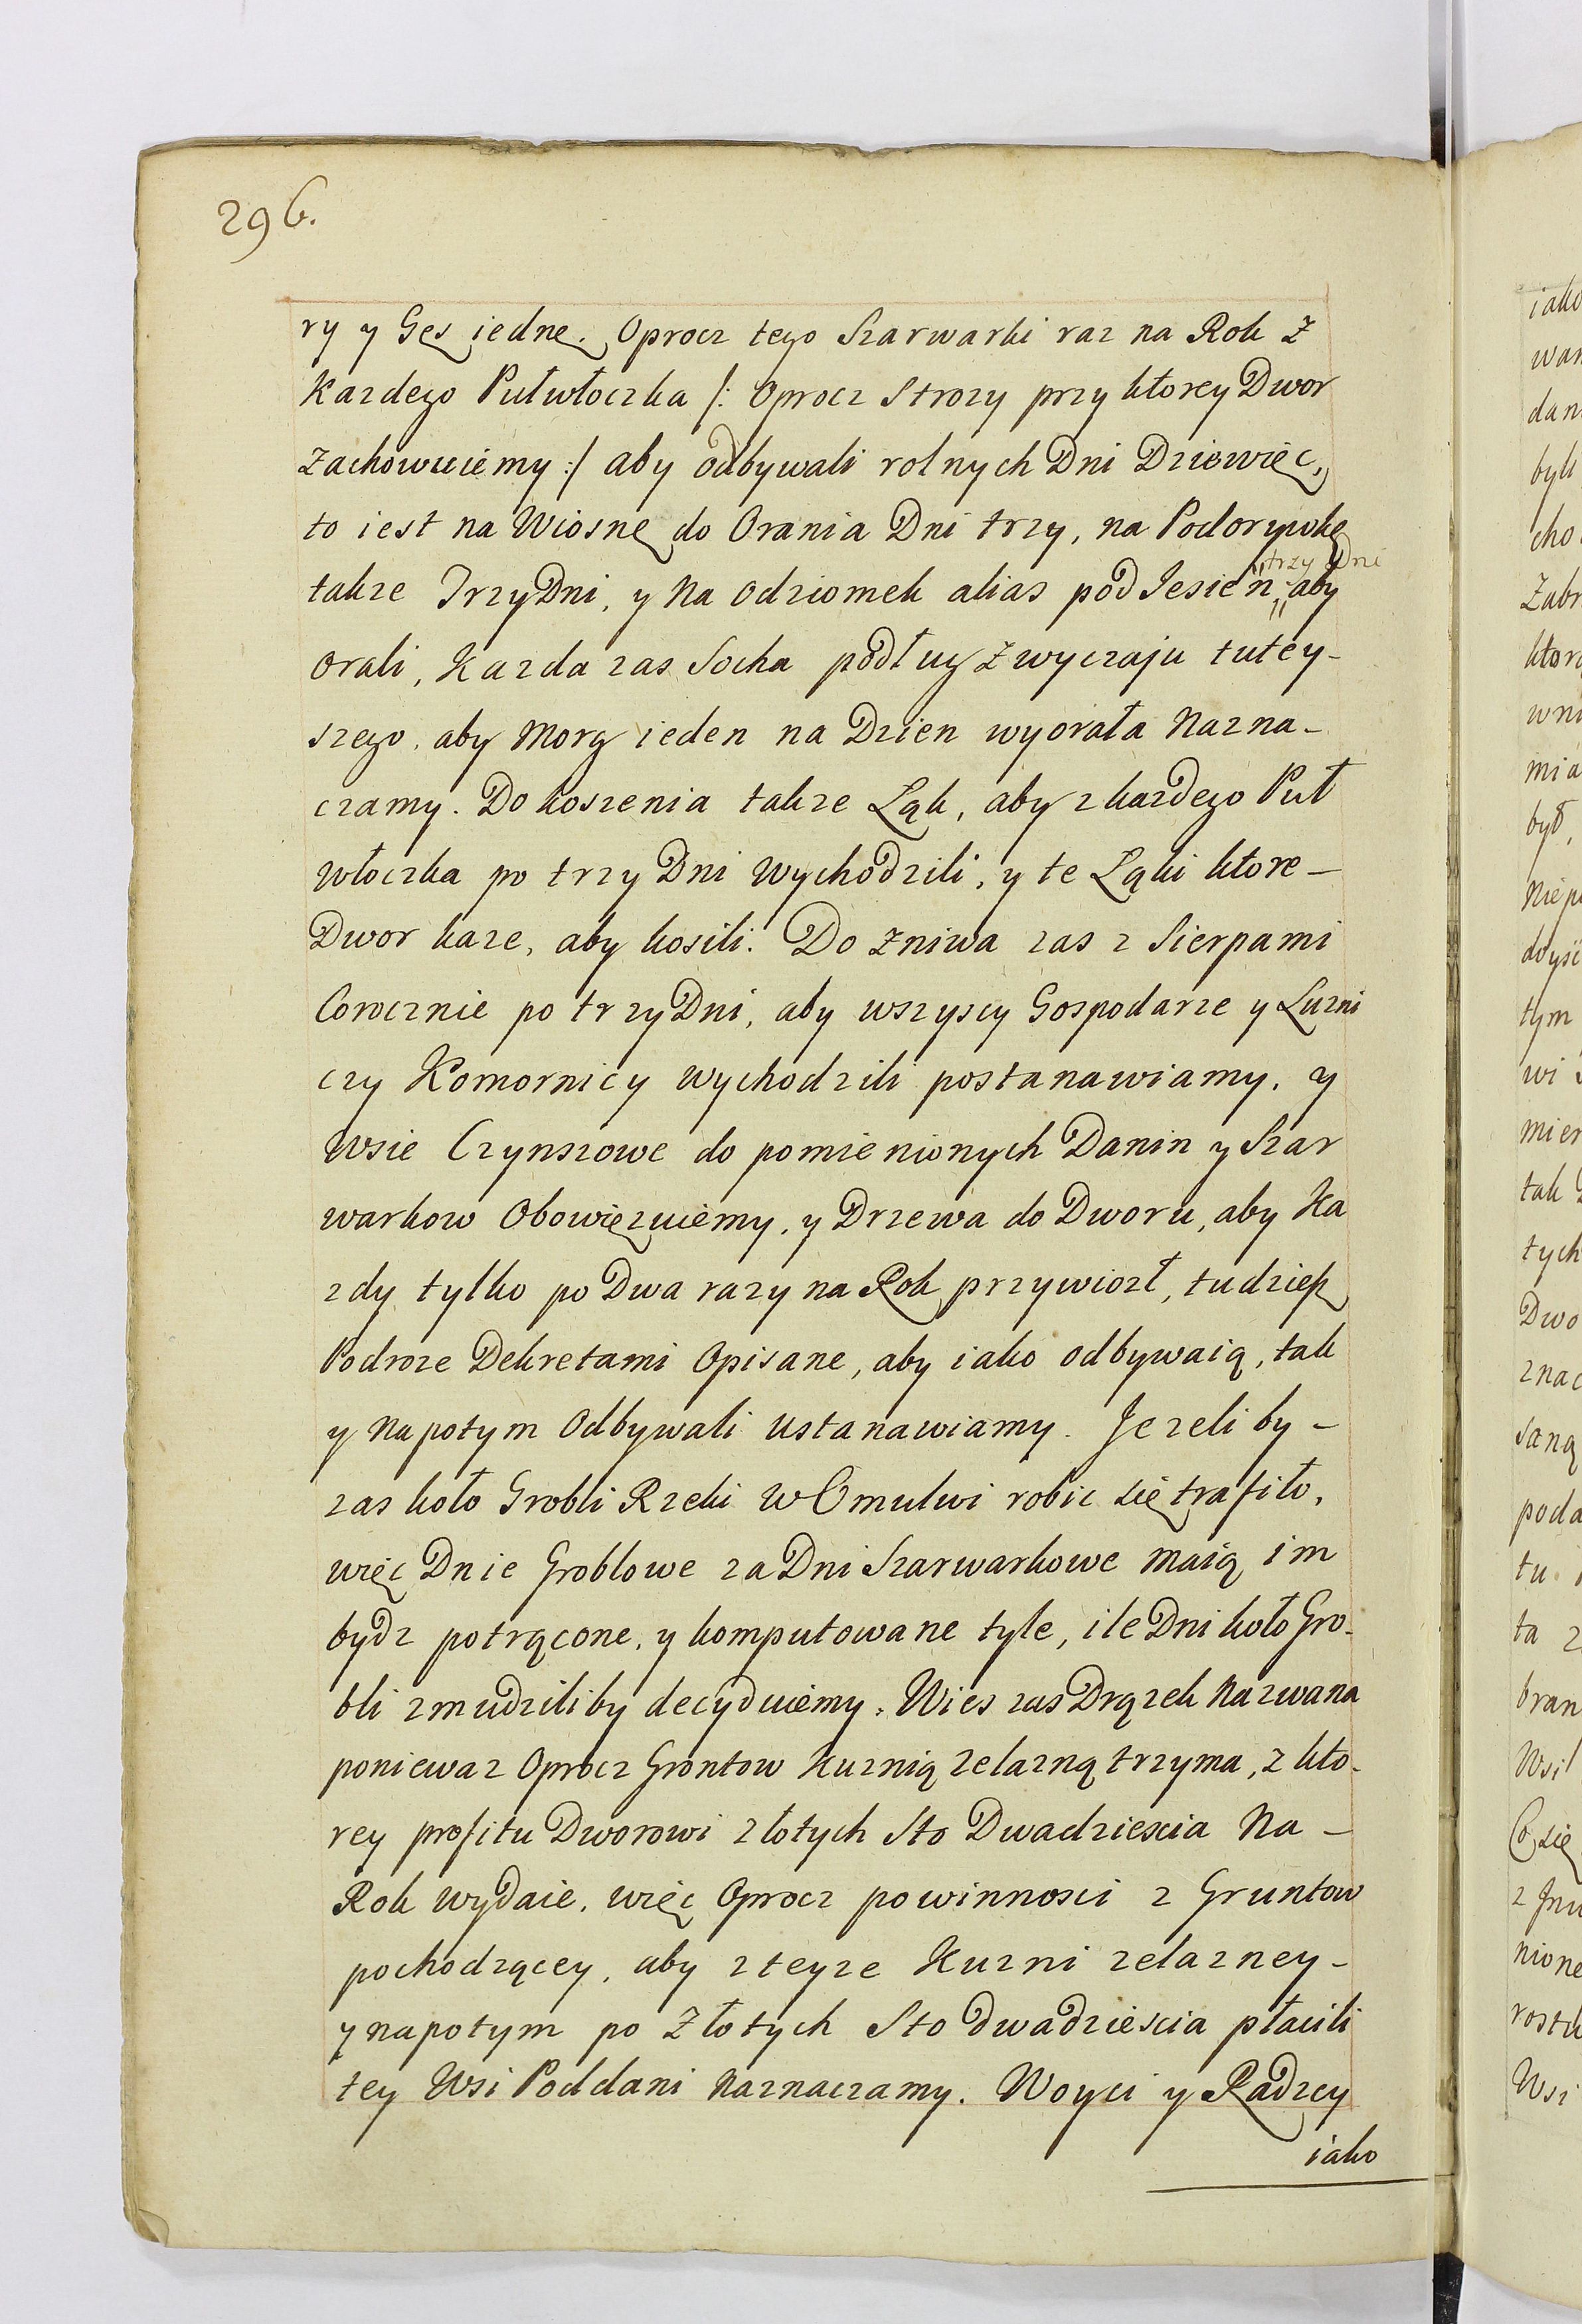 296.
ry y Gęs iedne. Oprocz tego Szarwarki raz na Rok Z
Kazdego Pułwłoczka /: Oprocz Strozy przy ktorey Dwor
Zachowuiemy :/ aby odbywali rolnych Dni Dziewięc,
to iest na Wiosnę do Orania Dni trzy, na Podorywkę
takze Trzy Dni, y Na Odziomek alias pod Jesień trzy Dni aby
Orali, Kazda zas Socha podług Zwyczaju tutey-
szego, aby Morg ieden na Dzien wyorała Nazna-
czamy. Do koszenia takze Ląk, aby z kazdego Puł
Włoczka po trzy Dni Wychodzili, y te Ląki ktore-
Dwor kaze, aby kosili. Do Zniwa zas z Sierpami
Corocznie po trzy Dni, aby wszyscy Gospodarze y Luzni
czy Komornicy Wychodzili postanawiamy, y
Wsie Czynszowe do pomienionych Danin y Szar
warkow Obowięzuiemy, y Drzewa do Dworu, aby Ka
zdy tylko po Dwa razy na Rok przywiozł, tudziesz
Podroze Dekretami Opisane, aby iako odbywaią, tak
y Napotym Odbywali Ustanawiamy. Jezeliby-
zas koło Grobli Rzeki W Omulwi robic się trafiło,
więc Dnie Groblowe za Dni Szarwarkowe Maią im
bydz potrącone, y komputowane tyle, ile Dni koło Gro-
bli zmudziliby decyduiemy. Wies zas Drązek Nazwana
poniewaz Oprocz Grontow Kuznią Zelazną trzyma, z kto-
rey profitu Dworowi złotych Sto Dwadziescia Na-
Rok wydaie, więc Oprocz powinnosci z Gruntow
pochodzącey, aby z teyze Kuzni zelazney-
y napotym po Złotych Sto dwadziescia płacili
tey Wsi Poddani Naznaczamy. Woyci y Radzcy
iako